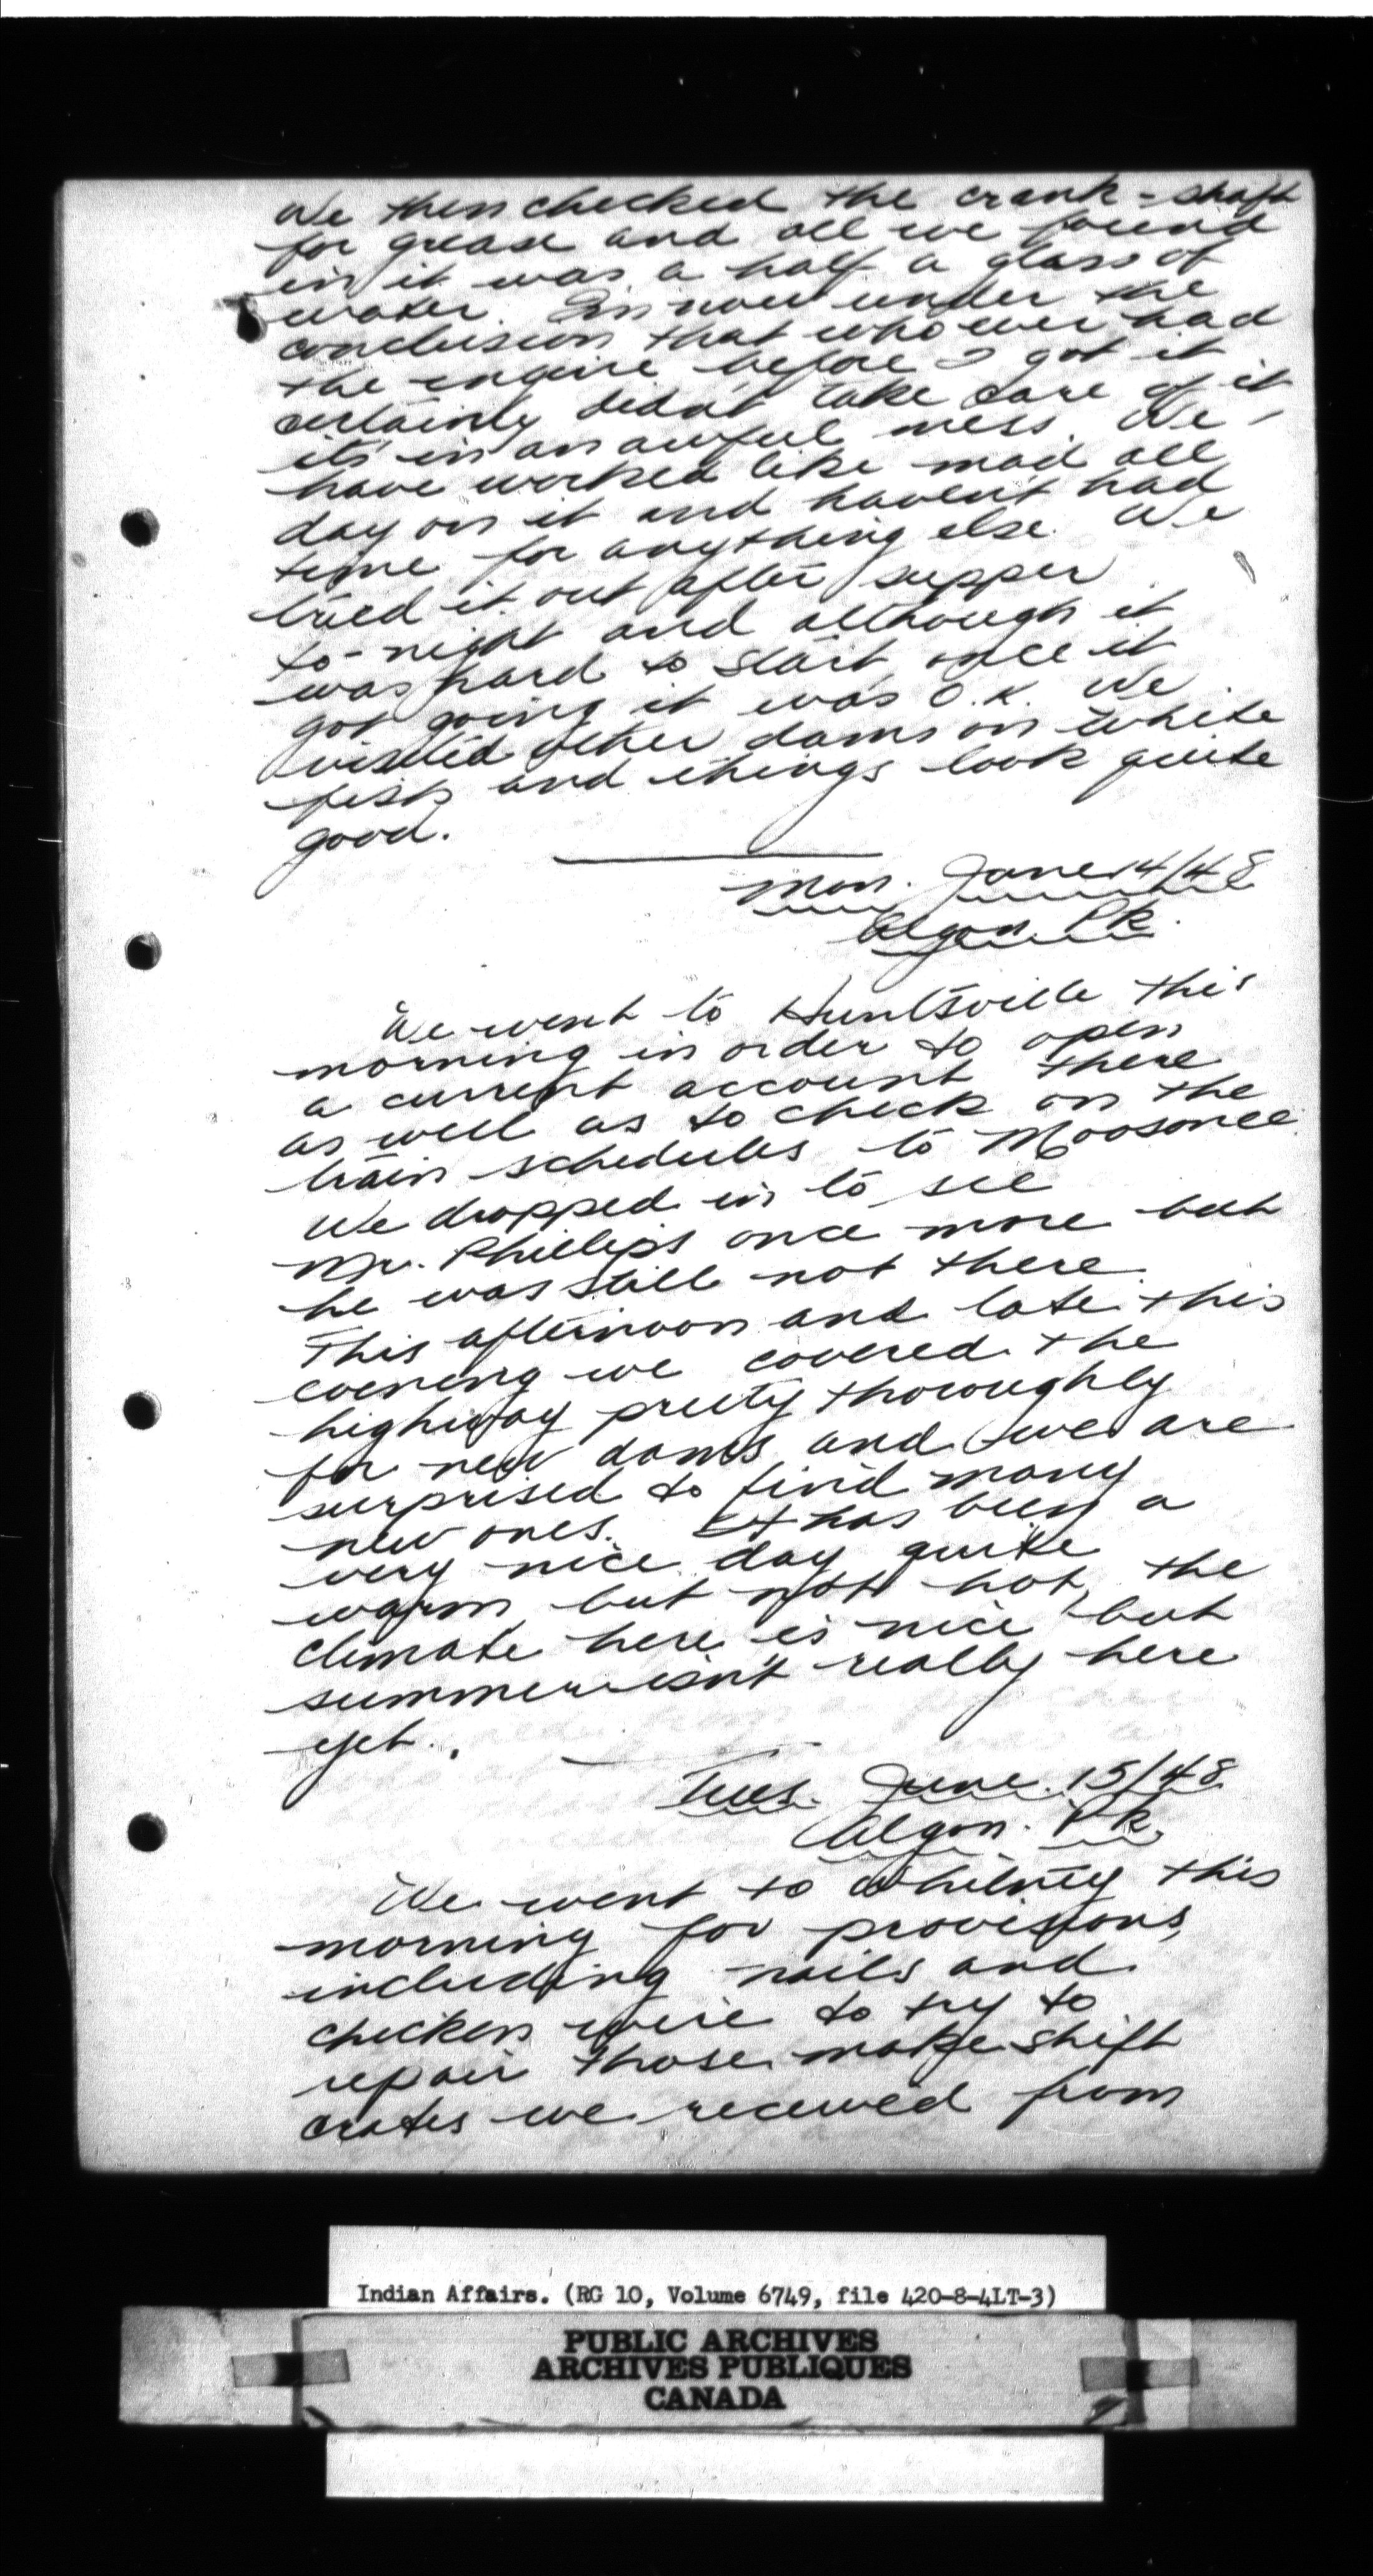 We then checked the crank-shaft
for grease and all we found
in it was a half a glass of
water. I'm now under the
conclusion that whoever had
the engine before I got it
certainly didn't take care of it
it's in an awful mess. We
have worked like mad all
day on it and haven't had
time for anything else. We
tried it out after supper
to-night and although it
was hard to start once it
got going it was O.K. We
visited other dams on White
fish and things look quite
good.
Mon. June 14/48
Algon. Pk.
We went to Huntsville this
morning in order to open
a current account there
as well as to check on the
train schedules to Moosonee.
We dropped in to see
Mr. Phillips once more but
he was still not there.
This afternoon and late this
evening we covered the
highway pretty thoroughly
for new dams and we are
surprised to find many
new ones. It has been a
very nice day quite
warm but not hot, the
climate here is nice but
summer isn't really here
yet.
Tues. June 15/48
Algon. Pk.
We went to Whitney this
morning for provisions,
including nails and
chicken wire to try to
repair those makeshift
crates we received from
Indian Affairs. (RG 10, Volume 6749, file 420-8-4LT-3)
PUBLIC ARCHIVES
ARCHIVES PUBLIQUES
CANADA